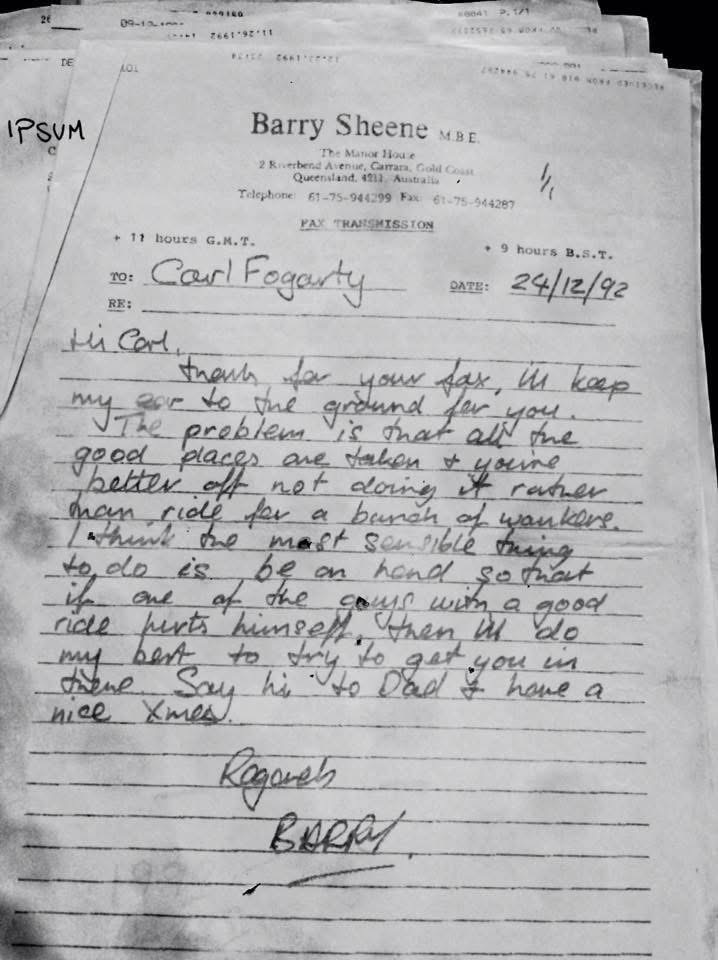 09-12-1992
11.12.1992
P.1/1
DE
101
IPSUM
Barry Sheene M.B.E.
The Manor House
2 Riverbend Avenue, Carrara, Gold Coast
Queensland, 4211, Australia
Telephone: 61-75-944299 Fax: 61-75-944287
1/1
FAX TRANSMISSION
+ 11 hours G.M.T. + 9 hours B.S.T.
TO: Carl Fogarty DATE: 24/12/92
RE:
Hi Carl,
thanks for your fax, I'll keep
my ear to the ground for you.
The problem is that all the
good places are taken & you're
better off not doing it rather
than ride for a bunch of wankers.
I think the most sensible thing
to do is be on hand so that
if one of the guys with a good
ride hurts himself, then I'll do
my best to try to get you in
there. Say hi to Dad & have a
nice Xmas.
Regards
BARRY.